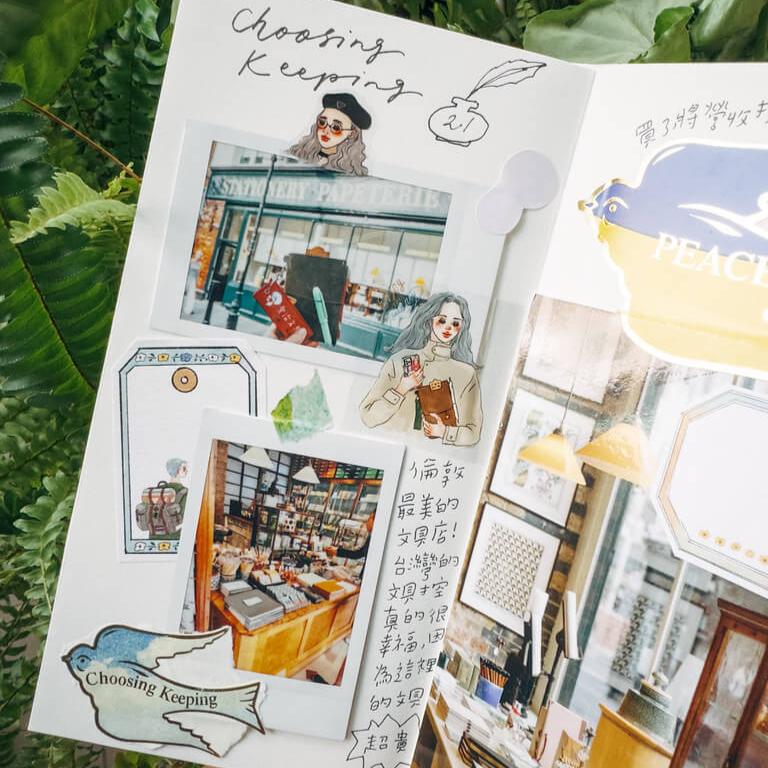 Choosing
Keeping
2.1
STATIONERY-PAPETERIE
倫敦
最美的
文具店!
台灣的
文具控
真的很
幸福,因
為這裡
的文具
超貴
Choosing Keeping
買了將營收
PEACE